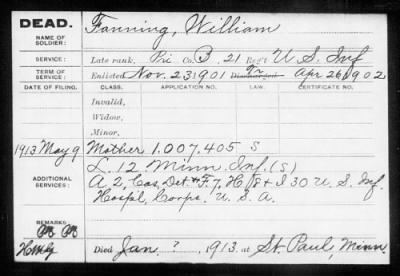 DEAD.
NAME OF SOLDIER:
Fanning, William
SERVICE:
Late rank, Pri Co. B, 21 Reg't U S Inf
TERM OF SERVICE:
Enlisted Nov. 23 1901 Discharged Tr Apr 26 1902
DATE OF FILING. CLASS. APPLICATION NO. LAW. CERTIFICATE NO.
Invalid,
Widow,
Minor,
1913 May 9 Mother 1,007,405 S
ADDITIONAL SERVICES:
L. 12. Minn Inf. (S)
A 2, Cas, Det. & F. 7, H 18 & I 30 U. S. Inf.
Hospl, Corps. U. S. A.
REMARKS:
Died Jan. ?, 1913 at St. Paul, Minn.